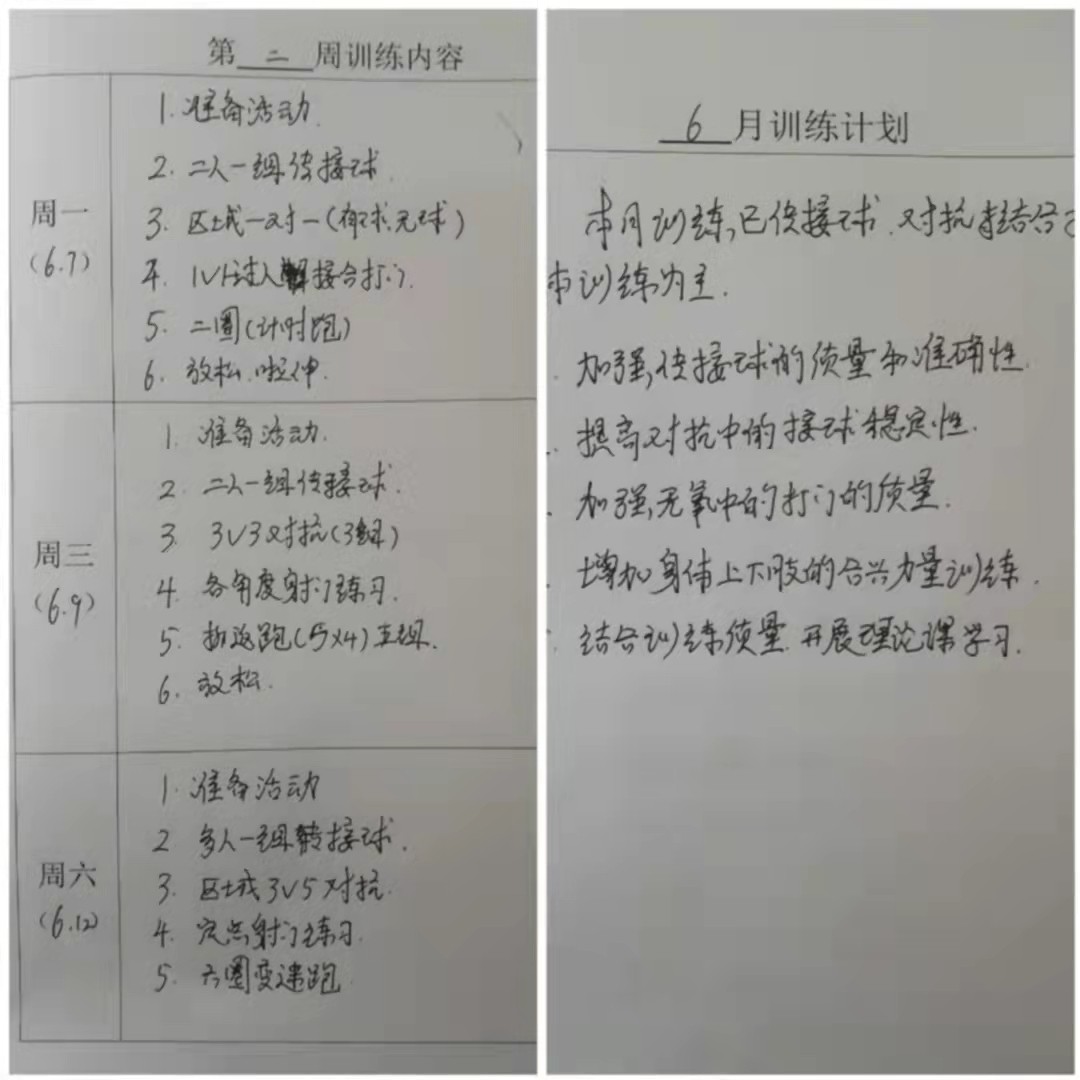 第 二 周训练内容
周一
(6.7)
1. 准备活动.
2. 二人一组传接球.
3. 区域一对一(有球.无球)
4. 1V1过人接合打门.
5. 二圈(计时跑)
6. 放松.啦伸.
周三
(6.9)
1. 准备活动.
2. 二人一组传接球.
3. 3V3对抗(3组)
4. 各角度射门练习.
5. 折返跑(5X4)五组.
6. 放松.
周六
(6.12)
1. 准备活动
2 多人一组转接球.
3. 区域3V5对抗.
4. 定点射门练习.
5. 六圈变速跑
6 月训练计划
本月训练,已传接球.对抗结合
本训练为主.
加强,传接球的质量和准确性.
提高对抗中的接球稳定性.
加强,无氧中的打门的质量.
增加身体上下肢的合兴力量训练.
结合训练质量.开展理论课学习.